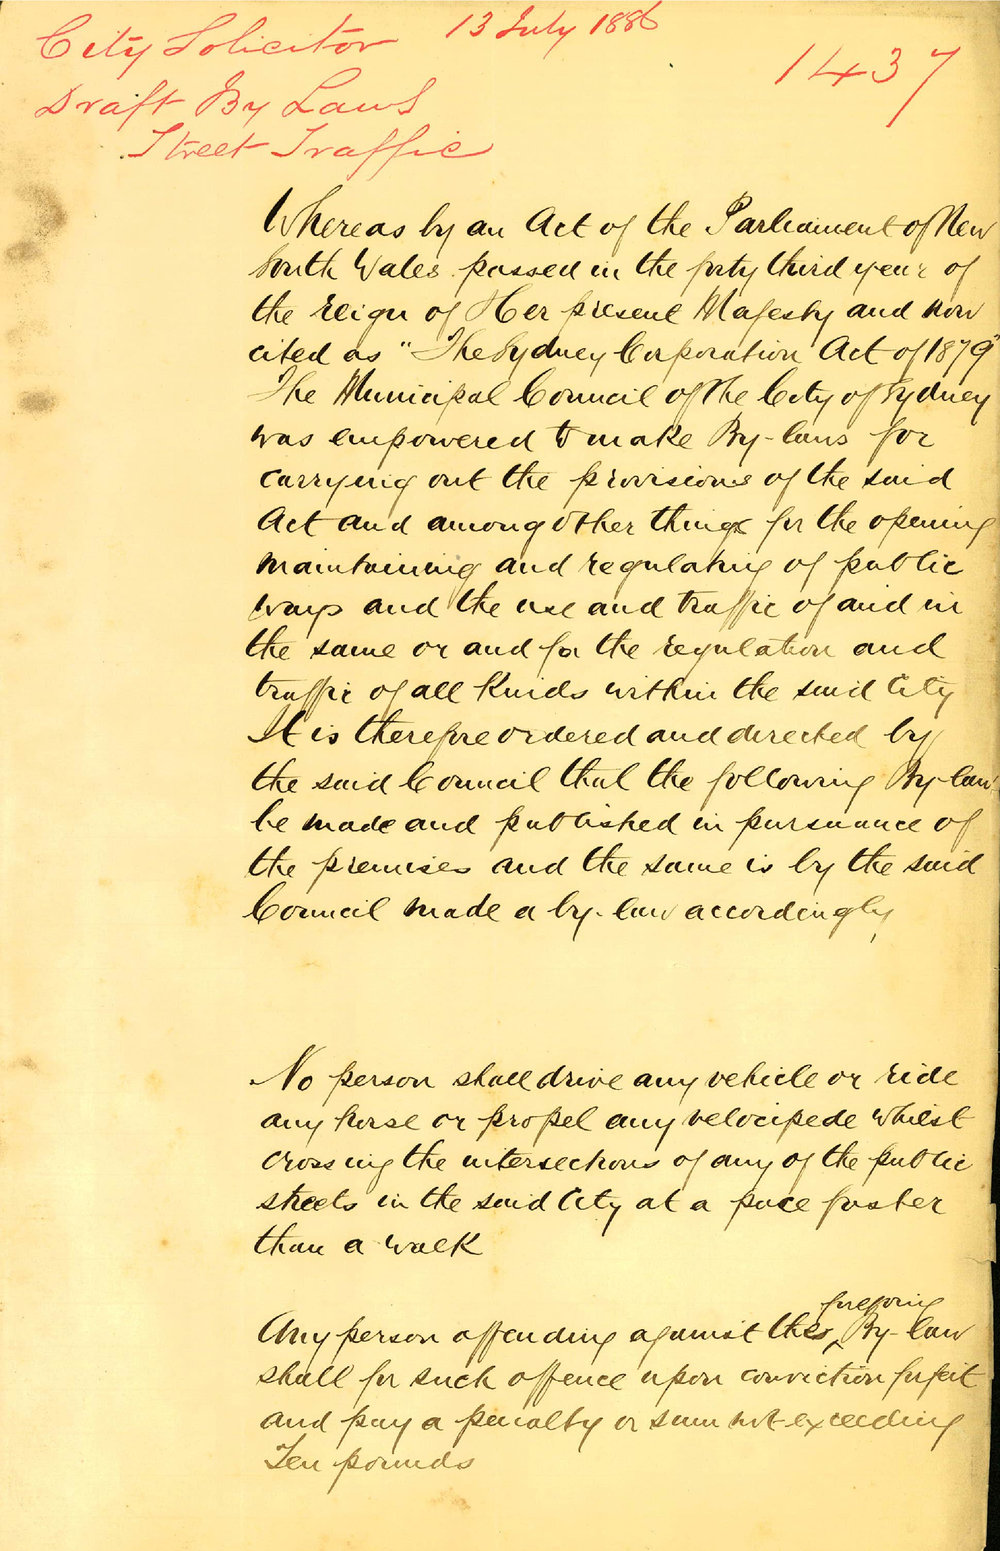 City Solicitor 13 July 1886
1437
Draft By Laws
Street Traffic
Whereas by an Act of the Parliament of New
South Wales passed in the forty third year of
the reign of Her present Majesty and now
cited as "The Sydney Corporation Act of 1879"
The Municipal Council of the City of Sydney
was empowered to make By-laws for
carrying out the provisions of the said
Act and among other things for the opening
maintaining and regulating of public
ways and the use and traffic of and in
the same or and for the regulation and
traffic of all kinds within the said City
It is therefore ordered and directed by
the said Council that the following By-law
be made and published in pursuance of
the premises and the same is by the said
Council made a by-law accordingly
No person shall drive any vehicle or ride
any horse or propel any velocipede whilst
crossing the intersections of any of the public
streets in the said City at a pace faster
than a walk
foregoing
Any person offending against the By-law
shall for such offence upon conviction forfeit
and pay a penalty or sum not exceeding
Ten pounds